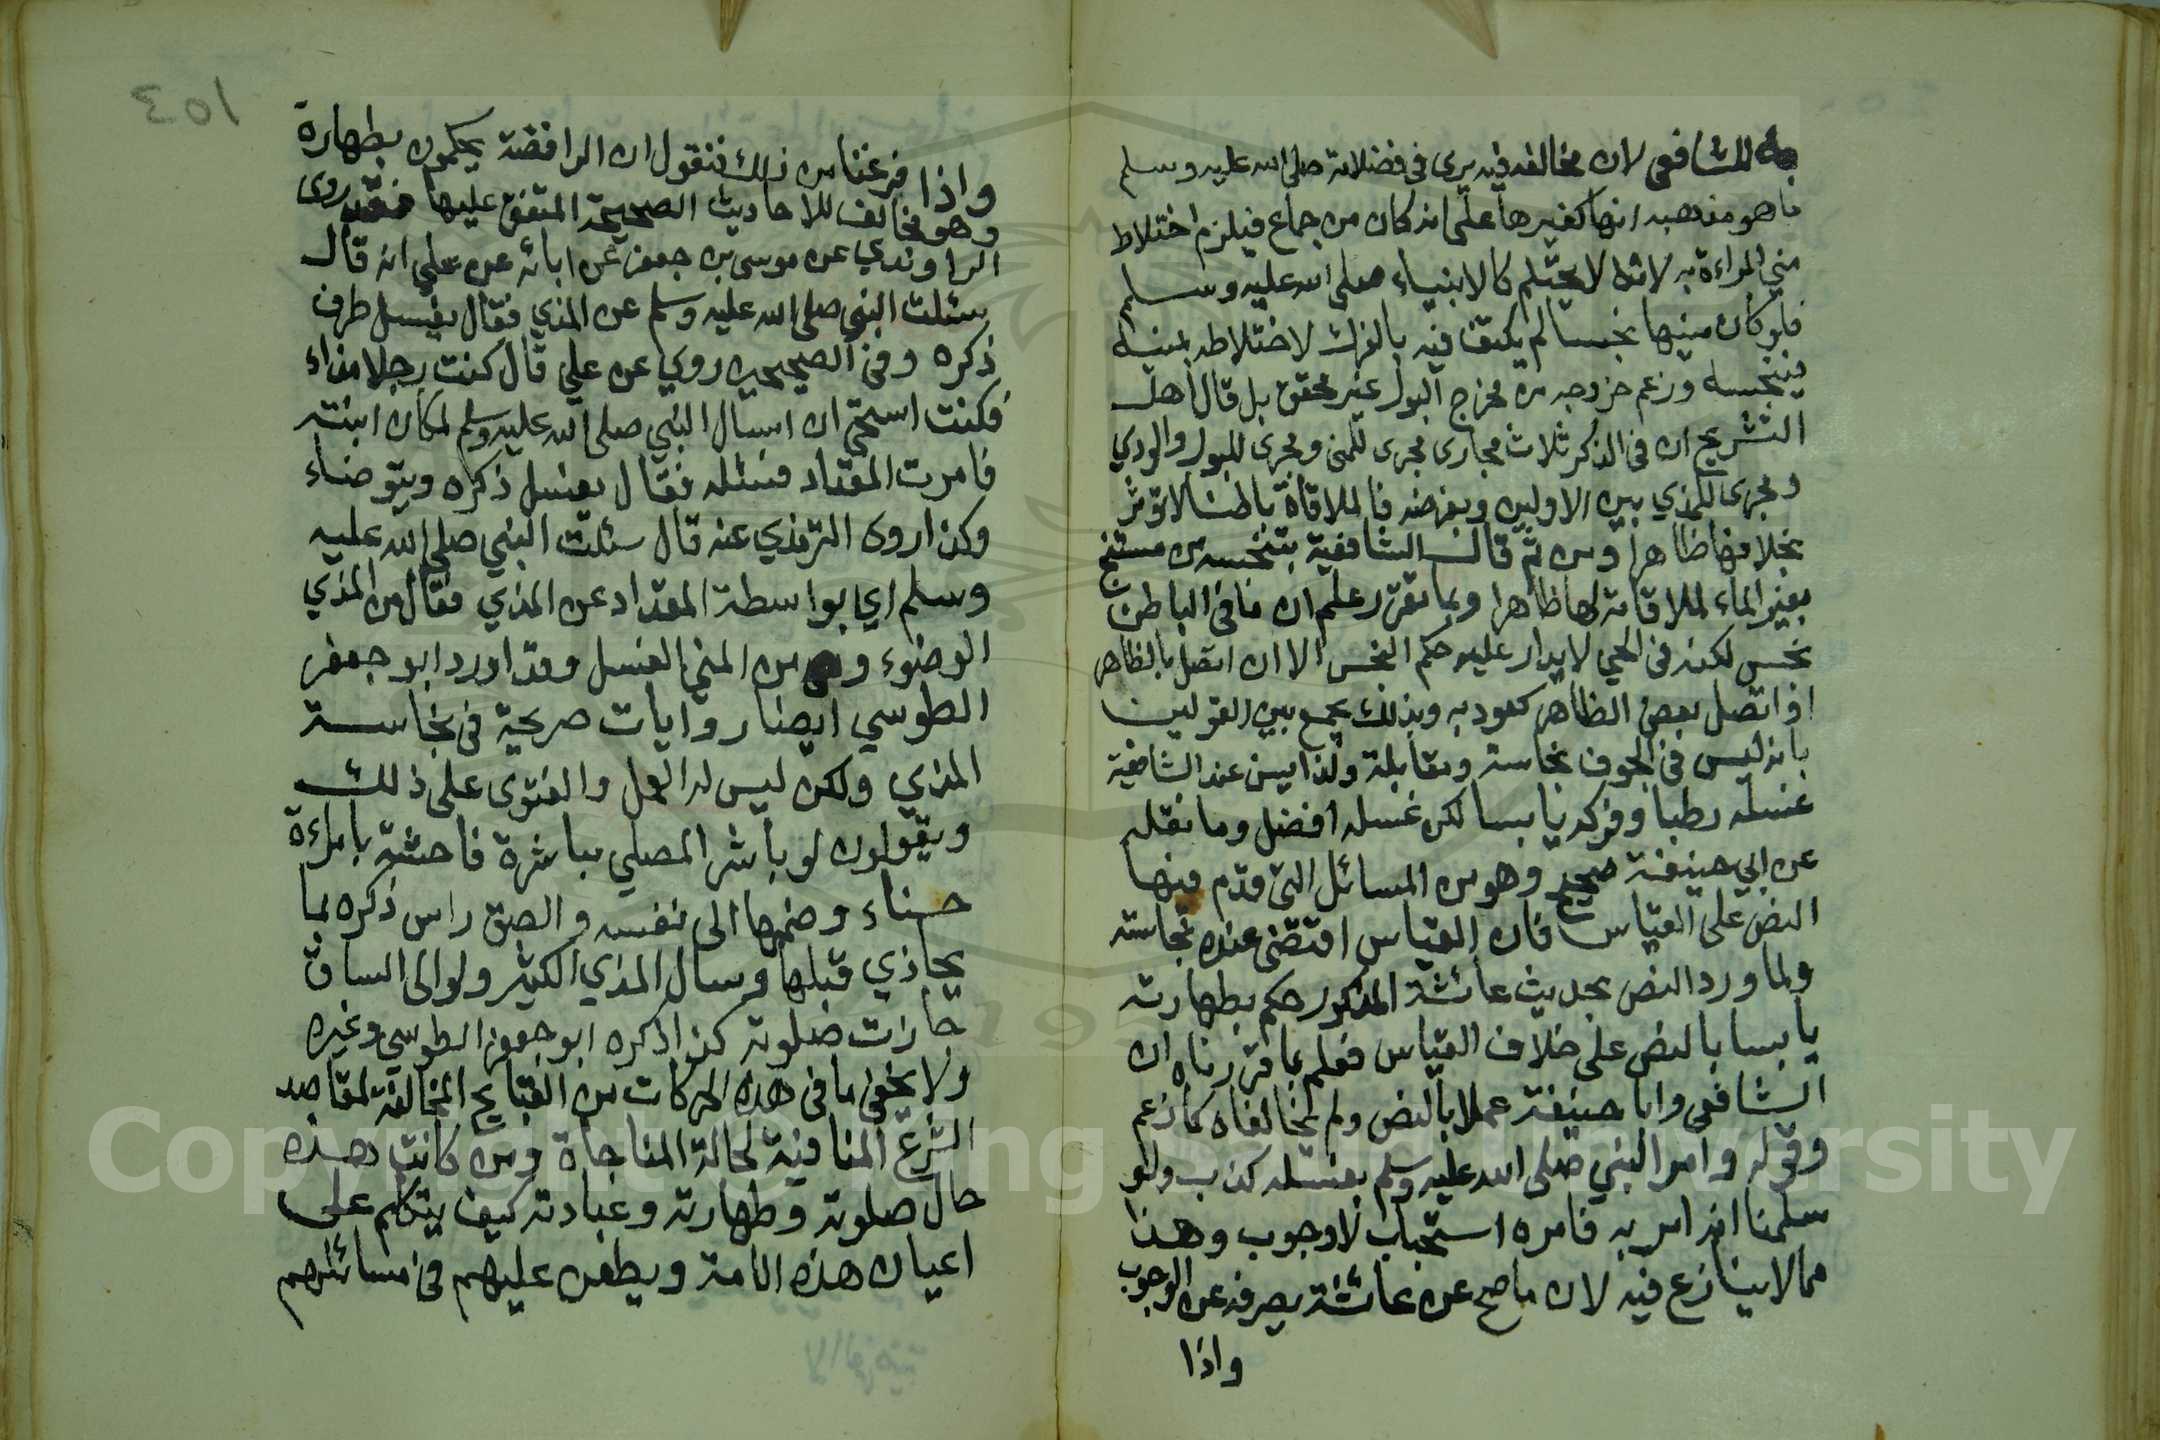 به للشافعي لان مخالفه فيه يرى في فضلاته صلى الله عليه وسلم
ما هو مذهبه انها كغيرها على انه كان من جماع فيلزم اختلاط
مني المراءة به لانه لا يحتلم كالانبياء صلى الله عليه وسلم
فلو كان منيها نجسا لم يكتف فيه بالفرك لاختلاطه بمنيه
فينجسه وزعم خروجه من مخرج البول غير محقق بل قال اهل
التشريح ان في الذكر ثلاث مجارى مجرى للمني ومجرى للبول والودي
ومجرى للمذي بين الاولين وبفرضه فالملاقاة باطنا لا تؤثر
بخلافها ظاهرا ومن ثم قالت الشافعية بتنجسه من مستنج
بغير الماء لملاقاته لها ظاهرا وبما تقرر علم ان ما في الباطن
نجس لكنه في الحي لا يدار عليه حكم النجس الا ان اتصل بالظاهر
او اتصل بعض الظاهر كعود به وبذلك يجمع بين القولين
بانه ليس في الجوف نجاسة ومقابلة ولذا يسن عند الشافعية
غسله رطبا وفركه يابسا لكن غسله افضل وما نقله
عن ابي حنيفة صحيح وهو من المسائل التي قدم فيها
النص على القياس فان القياس اقتضى عنده نجاسته
ولما ورد النص بحديث عائشة المذكور حكم بطهارته
يابسا بالنص على خلاف القياس فعلم بما قررناه ان
الشافعي وابا حنيفة عملا بالنص ولم يخالفاه كما زعم
وقوله وامر النبي صلى الله عليه وسلم بغسله كذب ولو
سلمنا انه امر به فامره استحباب لا وجوب وهذا
مما لا ينازع فيه لان ما صح عن عائشة يصرفه عن الوجوب
واذا
١٥٤
واذا فرغنا من ذلك فنقول ان الرافضة يحكمون بطهارة
وهو مخالف للاحاديث الصحيحة المتفق عليها فقد روى
الراوندي عن موسى بن جعفر عن ابائه عن علي انه قال
سئلت النبي صلى الله عليه وسلم عن المذي فقال يغسل طرف
ذكره وفي الصحيحين روي عن علي قال كنت رجلا مذاء
فكنت استحي ان اسال النبي صلى الله عليه وسلم لمكان ابنته
فامرت المقداد فسئله فقال يغسل ذكره ويتوضاء
وكذا روى الترمذي عنه قال سئلت النبي صلى الله عليه
وسلم اي بواسطة المقداد عن المذي فقال من المذي
الوضوء و من المني الغسل وقد اورد ابو جعفر
الطوسي ايضا روايات صريحة في نجاسة
المذي ولكن ليس له العمل والفتوى على ذلك
ويقولون لو باشر المصلي مباشرة فاحشة بامراءة
حسناء وضمها الى نفسه والصق راس ذكره بما
يحاذي قبلها وسال المذي الكثير ولو الى الساق
جازت صلوته كذا ذكره ابو جعفر الطوسي وغيره
ولا يخفى ما في هذه الحركات من القبايح المخالفة لمقاصد
الشرع المنافية لحالة المناجاة ومن كانت هذه
حال صلوته وطهارته وعبادته كيف يتكلم على
اعيان هذه الامة ويطعن عليهم في مسائلهم
Copyright © King Saud University